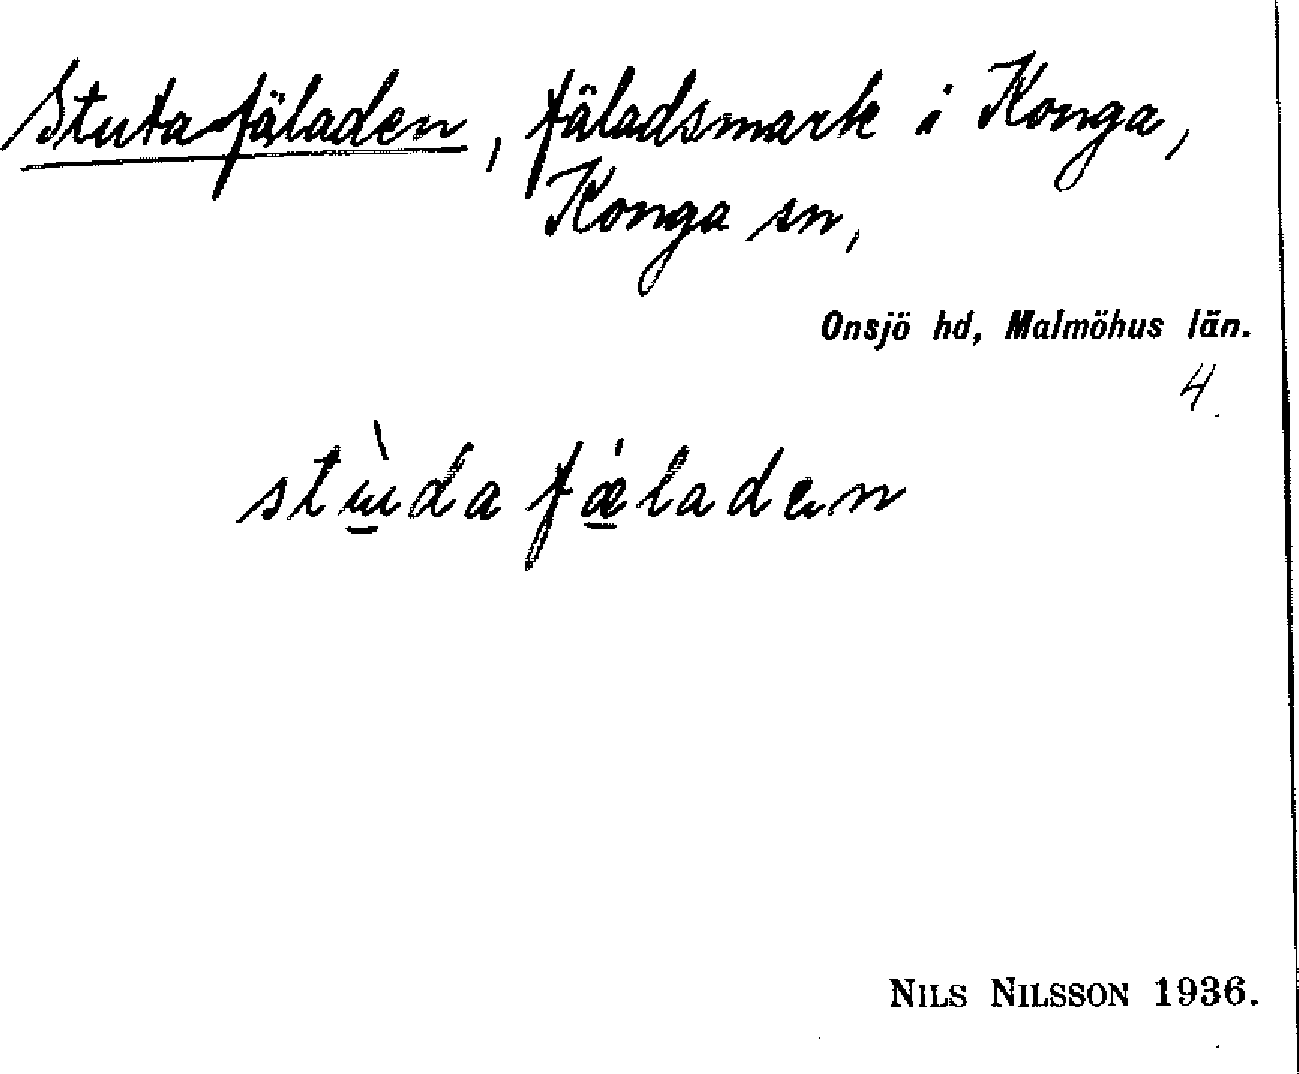 Stutafäladen, fäladsmark i Konga,
Konga sn,
Onsjö hd, Malmöhus län.
4.
stɯ̀da fǽladen
NILS NILSSON 1936.